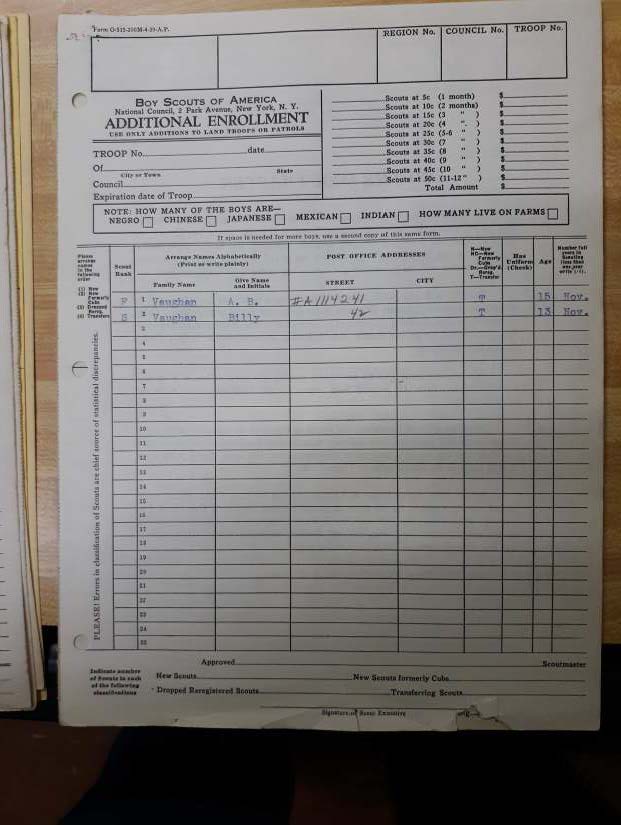 Form O-515-200M-4-39-A.P.
REGION No. COUNCIL No. TROOP No.
BOY SCOUTS OF AMERICA
National Council, 2 Park Avenue, New York, N. Y.
ADDITIONAL ENROLLMENT
USE ONLY ADDITIONS TO LAND TROOPS OR PATROLS
TROOP No. date
Of
City or Town State
Council
Expiration date of Troop
Scouts at 5c (1 month) $
Scouts at 10c (2 months) $
Scouts at 15c (3 " ) $
Scouts at 20c (4 " ) $
Scouts at 25c (5-6 " ) $
Scouts at 30c (7 " ) $
Scouts at 35c (8 " ) $
Scouts at 40c (9 " ) $
Scouts at 45c (10 " ) $
Scouts at 50c (11-12 " ) $
Total Amount $
NOTE: HOW MANY OF THE BOYS ARE—
NEGRO CHINESE JAPANESE MEXICAN INDIAN HOW MANY LIVE ON FARMS
If space is needed for more boys, use a second copy of this same form.
Please arrange names in the following order
(1) New
(2) New Formerly Cubs
(3) Dropped Rereg.
(4) Transfers
Scout Rank
Arrange Names Alphabetically
(Print or write plainly)
Family Name
Give Name and Initials
POST OFFICE ADDRESSES
STREET CITY
N—New
NC—New Formerly Cubs
Dr.—Drop'd Rereg.
T—Transfer
Has Uniform (Check)
Age
Number full years in Scouting
F 1 Vaughan A. B. #A1114241 T 15 Nov.
S 2 Vaughan Billy 42 T 13 Nov.
3
4
5
6
7
8
9
10
11
12
13
14
15
16
17
18
19
20
21
22
23
24
25
PLEASE! Errors in classification of Scouts are chief source of statistical discrepancies.
Approved Scoutmaster
Indicate number of Scouts in each of the following classifications
New Scouts New Scouts formerly Cubs
Dropped Reregistered Scouts Transferring Scouts
Signature of Scout Executive